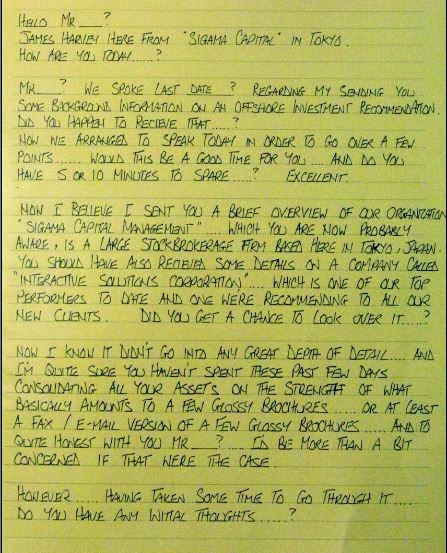 HELLO MR ____?
JAMES HARVEY HERE FROM "SIGAMA CAPITAL" IN TOKYO.
HOW ARE YOU TODAY.....?
MR____? WE SPOKE LAST DATE ? REGARDING MY SENDING YOU
SOME BACKGROUND INFORMATION ON AN OFFSHORE INVESTMENT RECOMMENDATION.
DID YOU HAPPEN TO RECIEVE THAT.....?
NOW WE ARRANGED TO SPEAK TODAY IN ORDER TO GO OVER A FEW
POINTS..... WOULD THIS BE A GOOD TIME FOR YOU.... AND DO YOU
HAVE 5 OR 10 MINUTES TO SPARE.....? EXCELLENT.
NOW I BELIEVE I SENT YOU A BRIEF OVERVIEW OF OUR ORGANIZATION
"SIGAMA CAPITAL MANAGEMENT".... WHICH YOU ARE NOW PROBABLY
AWARE, IS A LARGE STOCKBROKERAGE FIRM BASED HERE IN TOKYO, JAPAN.
YOU SHOULD HAVE ALSO RECIEVED SOME DETAILS ON A COMPANY CALLED
"INTERACTIVE SOLUTIONS CORPORATION".... WHICH IS ONE OF OUR TOP
PERFORMERS TO DATE AND ONE WERE RECOMMENDING TO ALL OUR
NEW CLIENTS. DID YOU GET A CHANCE TO LOOK OVER IT.....?
NOW I KNOW IT DIDN'T GO INTO ANY GREAT DEPTH OF DETAIL.... AND
I'M QUITE SURE YOU HAVEN'T SPENT THESE PAST FEW DAYS
CONSOLIDATING ALL YOUR ASSETS ON THE STRENGTH OF WHAT
BASICALLY AMOUNTS TO A FEW GLOSSY BROCHURES..... OR AT LEAST
A FAX / E-MAIL VERSION OF A FEW GLOSSY BROCHURES..... AND TO
QUITE HONEST WITH YOU MR____?..... I'D BE MORE THAN A BIT
CONCERNED IF THAT WERE THE CASE.
HOWEVER..... HAVING TAKEN SOME TIME TO GO THROUGH IT....
DO YOU HAVE ANY INITIAL THOUGHTS.....?